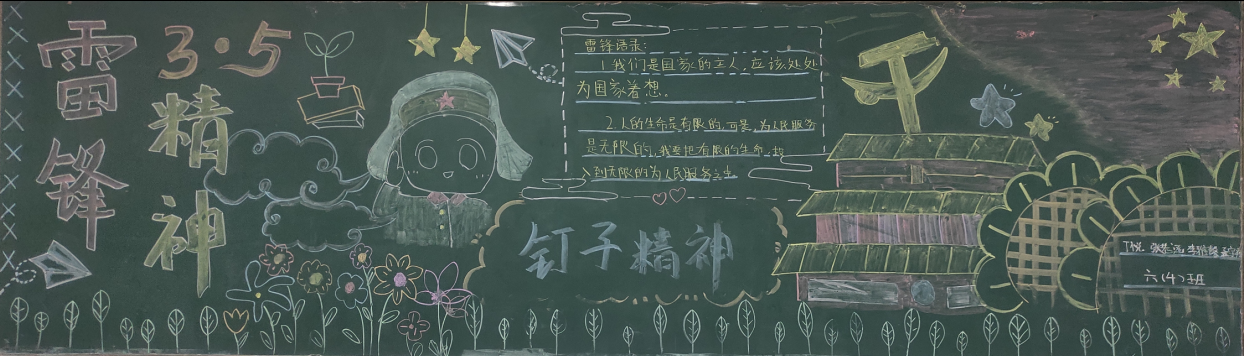 雷锋
3·5
精神
雷锋语录:
1.我们是国家的主人,应该处处
为国家着想。
2.人的生命是有限的,可是,为人民服务
是无限的,我要把有限的生命,投
入到无限的为人民服务之中
钉子精神
六(4)班